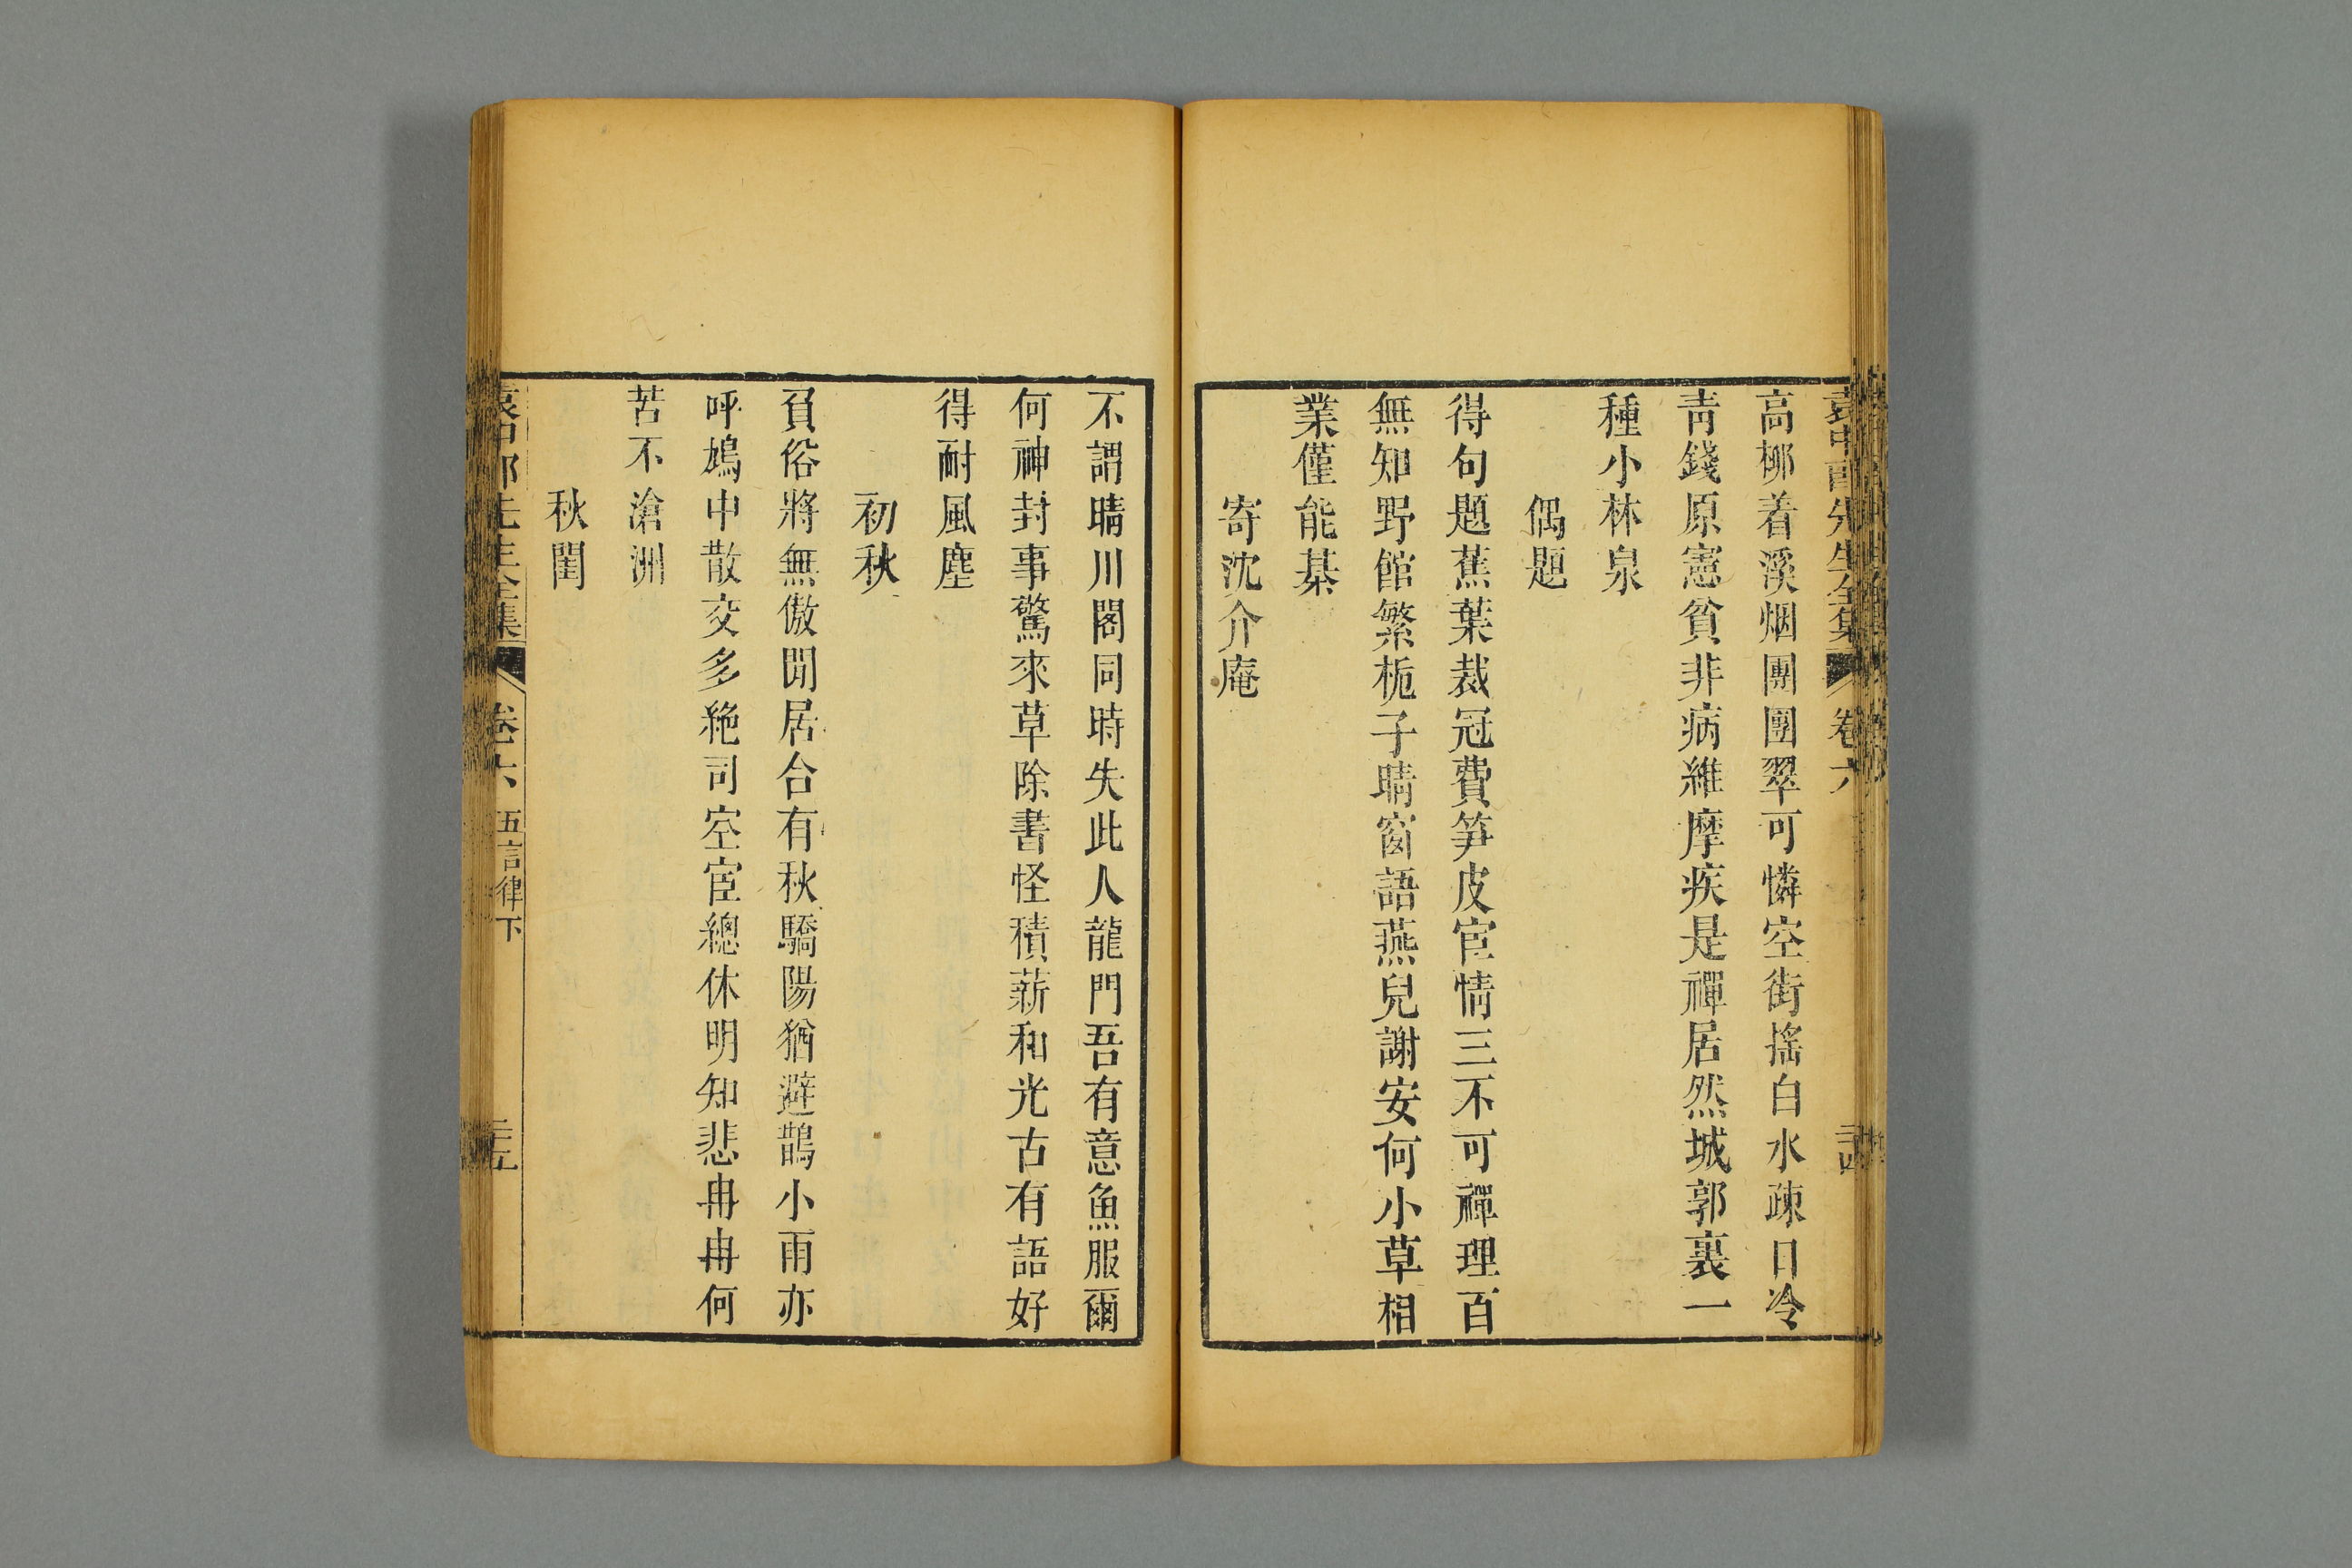 袁中郎先生全集 卷六 三十四
高栁着溪烟團團翠可憐空街搖白水疎日冷
靑錢原憲貧非病維摩疾是禪居然城郭裏一
種小林泉
偶題
得句題蕉葉裁冠費笋皮宦情三不可禪理百
無知野館繁栀子晴窗語燕兒謝安何小草相
業僅能棊
寄沈介庵
不謂晴川閣同時失此人龍門吾有意魚服爾
何神封事驚來草除書怪積薪和光古有語好
得耐風塵
初秋
負俗將無傲閒居合有秋驕陽猶避鵲小雨亦
呼鳩中散交多絶司空宦總休明知悲冉冉何
苦不滄洲
秋閨
袁中郎先生全集 卷六 五言律下 三十五